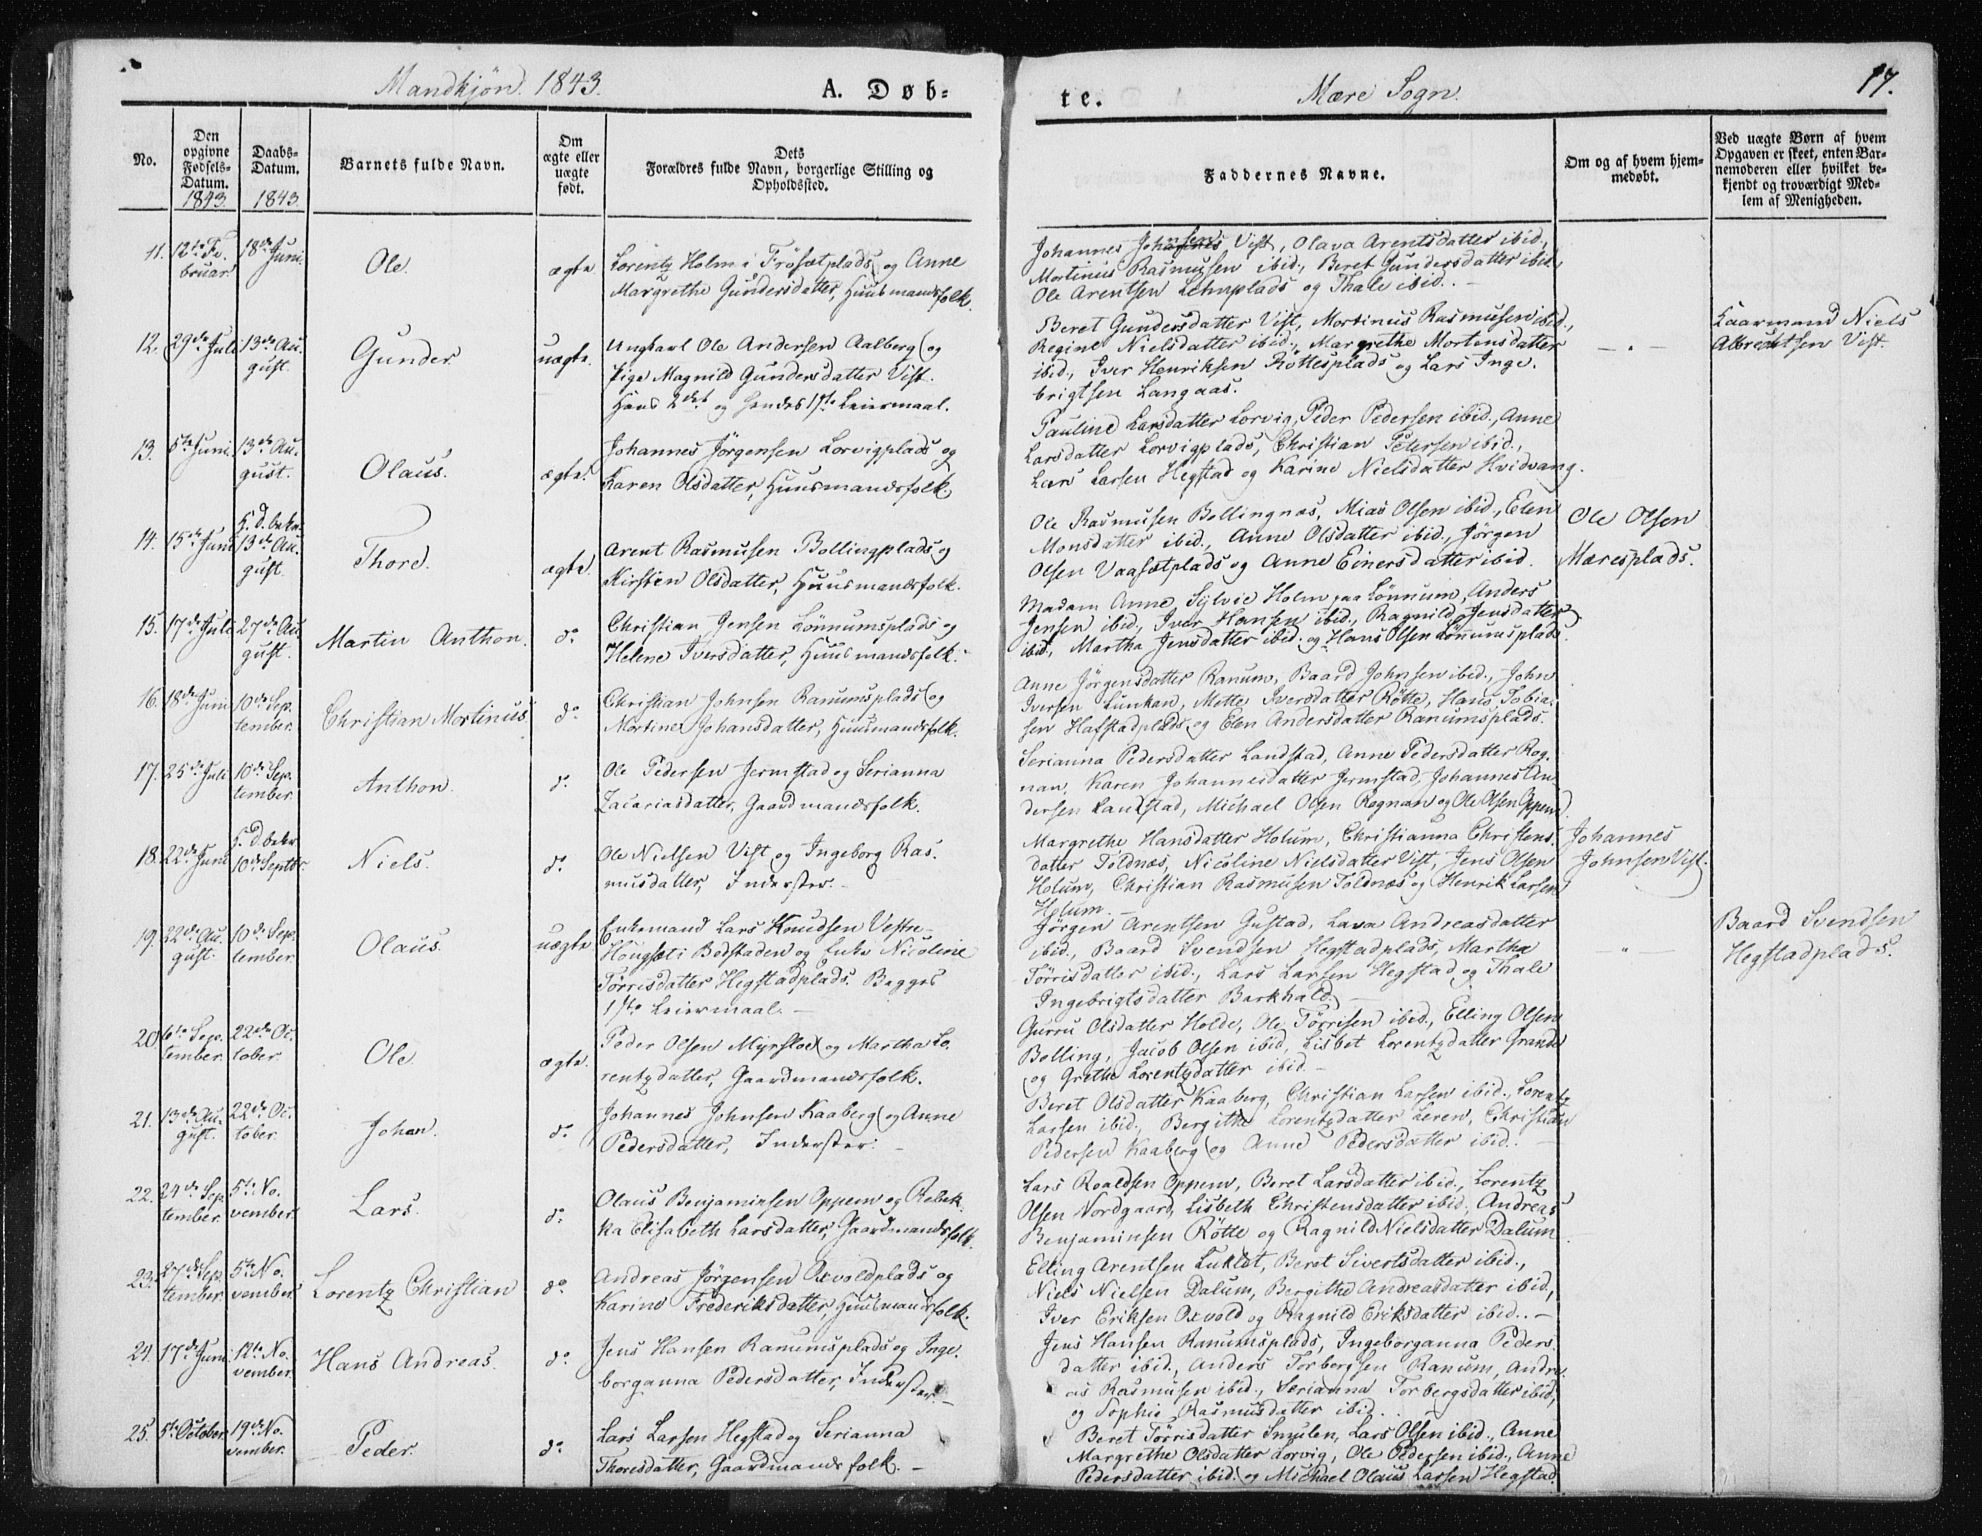 Mandkjøn. 1843.
A. Døb=
No.
Den opgivne Fødsels-Datum. 1843.
Daabs-Datum. 1843.
Barnets fulde Navn.
Om ægte eller uægte født.
Dets Forældres fulde Navn, borgerlige Stilling og Opholdssted.
te.
Mære Sogn.
17.
Faddernes Navne.
Om og af hvem hjem-medøbt.
Ved uægte Børn af hvem
Opgaven er skeet, enten Bar-
nemoderen eller hvilket be-
kjendt og troværdigt Med-
lem af Menigheden.
11. 12te Fe- 18de Juni
bruar.
Ole.
ægte.
Lorentz Holm i Frösetplads og Anne
Margrethe Gundersdatter, Huusmandsfolk.
Johannes Johnsens Vist, Olava Arentsdatter ibid.,
Mortinus Rasmusen ibid., Beret Gundersdatter ibid.,
Ole Arentsen Lehnplads og Thale ibid. -
12. 29de Juli 13de Au-
gust.
Gunder.
uægte.
Ungkarl Ole Andersen Aalberg og
Pige Magnild Gundersdatter Vist.
Hans 2det og hendes 1ste Leiermaal.
Beret Gundersdatter Vist, Mortinus Rasmusen ibid.,
Regine Nielsdatter ibid., Margrethe Mortensdatter
ibid., Iver Henriksen Röttesplads og Lars Inge-
brigtsen Langaas.
Gaarmand Niels
Albrechtsen Vist.
13. 5te Juni. 13de Au-
gust.
Olaus.
ægte.
Johannes Jörgensen Lorvigplads og
Karen Olsdatter, Huusmandsfolk.
Pauline Larsdatter Lorvig, Peder Pedersen ibid., Anne
Larsdatter Lorvigplads, Christian Petersen ibid.,
Lars Larsen Hegstad og Karine Nielsdatter Hvidvang.
14. 15de Juni 13de Au-
gust.
Thord.
ægte.
Arent Rasmusen Bollingplads og
Kirsten Olsdatter, Huusmandsfolk.
Ole Rasmusen Bollingnæs, Mias Olsen ibid., Elen
Monsdatter ibid., Anne Olsdatter ibid., Jörgen
Olsen Vaasetplads og Anne Einersdatter ibid.
Ole Olsen
Mæresplads.
15. 17de Juli 27de Au-
gust.
Martin Anthon.
do
Christian Jensen Lönnumsplads og
Helene Iversdatter, Huusmandsfolk.
Madam Anne Sylvie Holm paa Lönnum, Anders
Jensen ibid., Iver Hansen ibid., Ragnild Jensdatter
ibid., Martha Jensdatter ibid. og Hans Olsen Lönnumsplads.
16. 18de Juni 10de Sep-
tember.
Christian Mortinus
do
Christian Johnsen Ranumsplads og
Mortine Johansdatter, Huusmandsfolk.
Anne Jörgensdatter Ranum, Baard Johnsen ibid., John
Iversen Lunkan, Mette Iversdatter Rötte, Hans Tobia-
sen Hafstadplads og Elen Andersdatter Ranumsplads.
17. 25de Juli 10de Sep-
tember.
Anthon.
do
Ole Pedersen Jermstad og Serianna
Zacariasdatter, Gaardmandsfolk.
Serianna Pedersdatter Landstad, Anne Pedersdatter Rog-
nan, Karen Johannesdatter Jermstad, Johannes An-
dersen Landstad, Michael Olsen Rognan og Ole Olsen Oppem.
18. 22de Juni 10de Septbr.
Niels.
do
Ole Nielsen Vist og Ingeborg Ras-
musdatter, Inderster. -
Margrethe Hansdatter Holum, Christianna Christens-
datter Toldnæs, Nicoline Nielsdatter Vist, Jens Olsen
Holum, Christian Rasmusen Toldnæs og Henrik Larsen
Holum.
Johannes
Johnsen Vist.
19. 22de Au- 10de Sep-
gust. tember.
Olaus.
uægte
Enkemand Lars Knudsen Vestre
Hougset i Bedstaden og Enke Nicoline
Törrisdatter Hegstadplads. Begges
1ste Leiermaal. -
Jörgen Arentsen Gustad, Lava Andreasdatter
ibid., Baard Svendsen Hegstadplads, Martha
Törrisdatter ibid., Lars Larsen Hegstad og Thale
Ingebrigtsdatter Barkhald.
Baard Svendsen
Hegstadplads.
20. 6te Sep- 22de Oc-
tember. tober.
Ole
ægte.
Peder Olsen Myrslot og Martha Lo-
rentzdatter, Gaardmandsfolk.
Gurru Olsdatter Holde, Ole Törrisen ibid., Elling Olsen
Bolling, Jacob Olsen ibid., Lisbet Lorentzdatter Grande
og Grethe Lorentzdatter ibid. -
21. 13de Au- 22de Oc-
gust. tober.
Johan.
do
Johannes Johnsen Kaaberg og Anne
Pedersdatter, Inderster. -
Beret Olsdatter Kaaberg, Christian Larsen ibid., Lorentz
Larsen ibid., Bergithe Lorentzdatter Leren, Christian
Pedersen Kaaberg og Anne Pedersdatter ibid. -
22. 24de Sep- 5te No-
tember. vember.
Lars.
do
Olaus Benjaminsen Oppem og Rebek-
ka Elisabeth Larsdatter, Gaardmandsfolk.
Lars Roaldsen Oppem, Beret Larsdatter ibid., Lorentz
Olsen Nordgaard, Lisbeth Christensdatter ibid., Andreas
Benjaminsen Rötte og Ragnild Nielsdatter Dalum.
23. 27de Sep- 5te No-
tember. vember.
Lorentz Christian
do
Andreas Jörgensen Oxvoldplads og
Karine Frederiksdatter, Huusmandsfolk.
Elling Arentsen Tuklæt, Beret Sivertsdatter ibid.,
Niels Nielsen Dalum, Bergithe Andreasdatter ibid.,
Iver Eriksen Oxvold og Ragnild Eriksdatter ibid. -
24. 17de Juni 12te No-
vember.
Hans Andreas.
do
Jens Hansen Ranumsplads og Inge-
borganna Pedersdatter, Inderster. -
Jens Hansen Ranumsplads, Ingeborganna Peders-
datter ibid., Anders Torbergsen Ranum, Andre-
as Rasmusen ibid., Serianna Torbergsdatter ibid.,
og Sophie Rasmusdatter ibid.
25. 5te October. 19de No-
vember.
Peder.
do
Lars Larsen Hegstad og Serianna
Thoresdatter, Gaardmandsfolk. -
Beret Törrisdatter Snulen, Lars Olsen ibid., Anne
Margrethe Olsdatter Lorvig, Ole Pedersen ibid., Anne
Pedersdatter ibid. og Michael Olaus Larsen Hegstad.